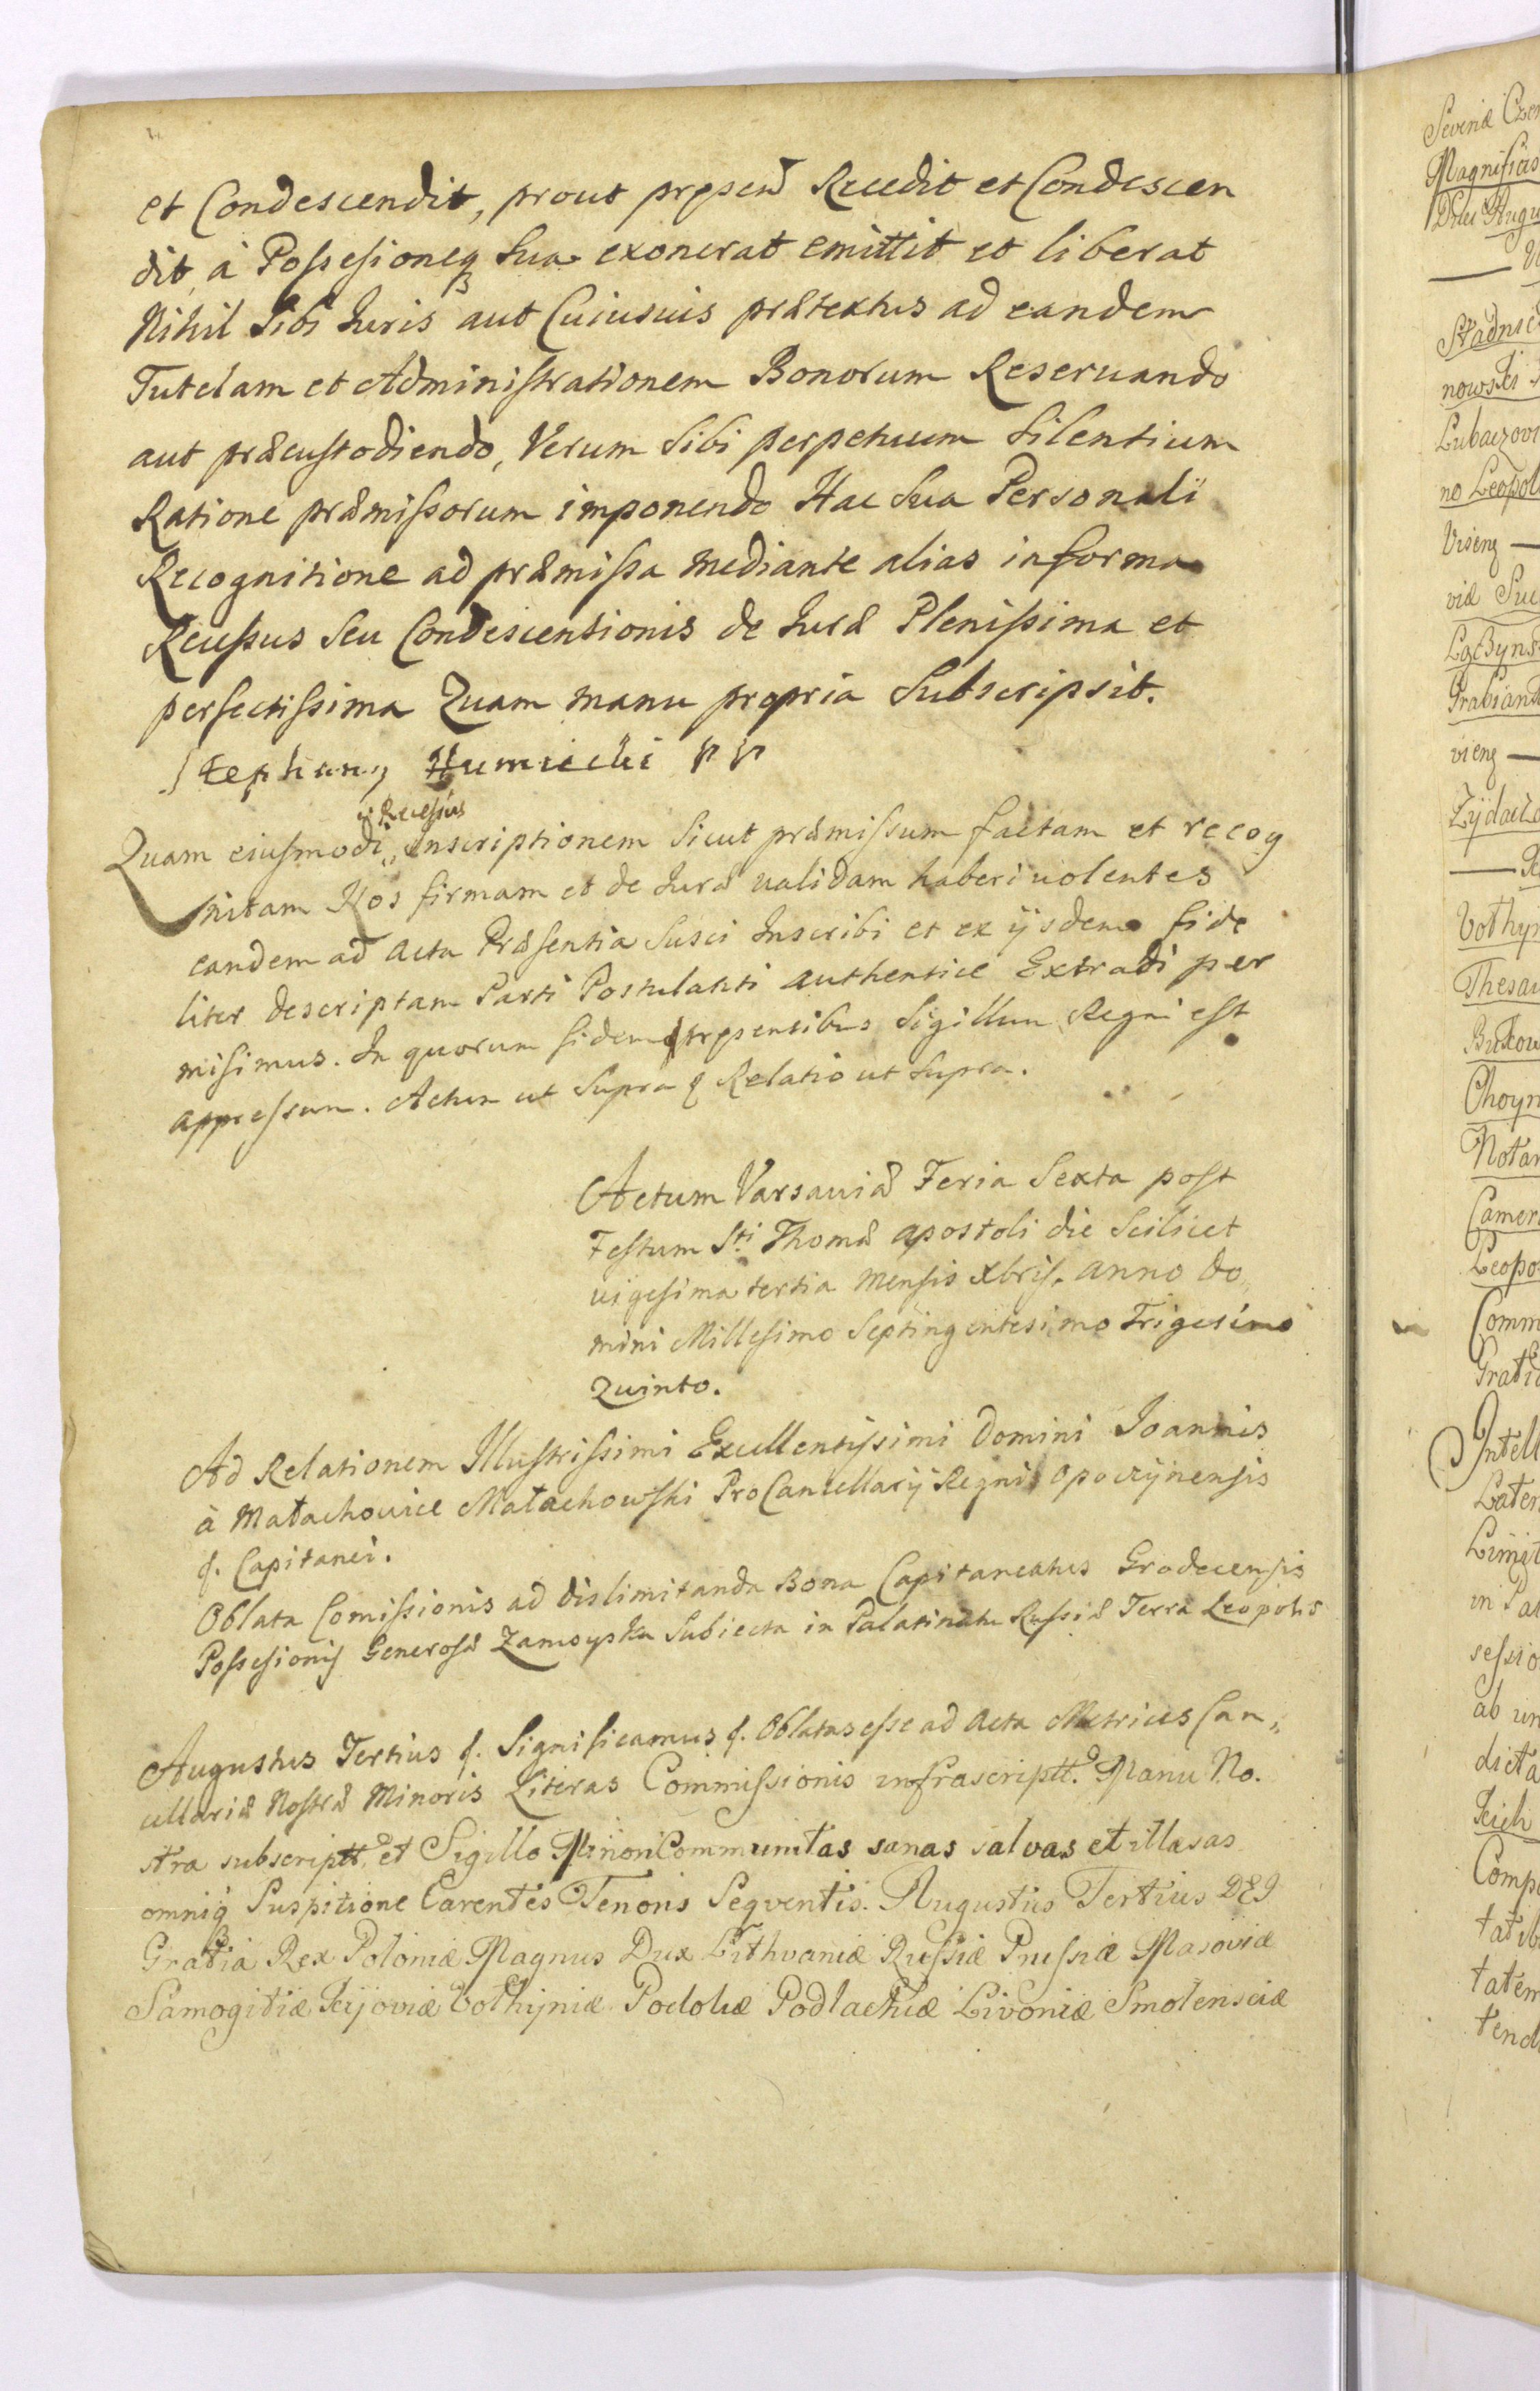 et Condescendit, prout prpsend Recedit et Condescen
dit, à Possesioneq sua exonerat emittit et liberat
Nihil Sibi Iuris aut Cuiusuis prætextus ad eandem
Tutelam et Administrationem Bonorum Reseruando
aut præcustodiendo, Verum Sibi perpetuum Silentium
Ratione præmissorum imponendo Hac Sua Personali
Recognitione ad præmissa mediante alias in forma
Recessus Seu Condescensionis de Iuræ Plenissima et
perfectissima Quam manu propria Subscripsit.
Stephany Humiecki
Quam eiusmodi Recessus Inscriptionem Sicut præmissum factam et recog
nitam Nos firmam et de Iuræ validam haberi uolentes
eandem ad acta Præsentia Susci Inscribi et ex ijsdem fide
liter descriptam Parti Postulanti authentice Extradi per
misimus. In quorum fidem prpsentibus Sigillum Regni est
appressum. Actum ut Supra Relatio ut Supra.
Actum Varsauiæ Feria Sexta post
Festum Sti Thomæ apostoli die Scilicet
uigesima tertia mensis Xbris. anno Do,,
mini Millesimo Septingentesimo Trigesimo
Quinto.
Ad Relationem Illustrissimi Excellentissimi Domini Ioannis
à Małachowice Małachowski ProCancellarij Regni Opoczÿnensis
&. Capitanei.
Oblata Comissionis ad dislimitanda Bona Capitaneatus Grodecensis
Possesionis Generosæ Zamoyska Subiecta in Palatinatu Russiæ Terra Leopolis
Augustus Tertius &. Significamus &. Oblatas esse ad acta Metrices Can,,
cellariæ Nostræ Minoris Literas Commissionis infrascriptt. Manu No.
stra subscriptt. et Sigillo Minori Communitas sanas salvas et illæsas
omniq Suspitione Carentes Tenoris Seqventis. Augustus Tertius DEI
Gratia Rex Poloniæ Magnus Dux Lithvaniæ Russiæ Prussiæ Masoviæ
Samogitiæ Kijoviæ Vołhyniæ Podoliæ Podlachiæ Livoniæ Smolensciæ
Severiæ
Magnificis
Stadnic
nowski
Lubaczovi
no Leopol
Grabians
Zÿdacz
Vołhyn
Thesau
Bukow
Choyn
Notar
Camer
Leopo
Comm
Gratia
Intell
Later
Limit
in Pal
sessio
ab un
dicta
Comp
tatib
tatem
tend